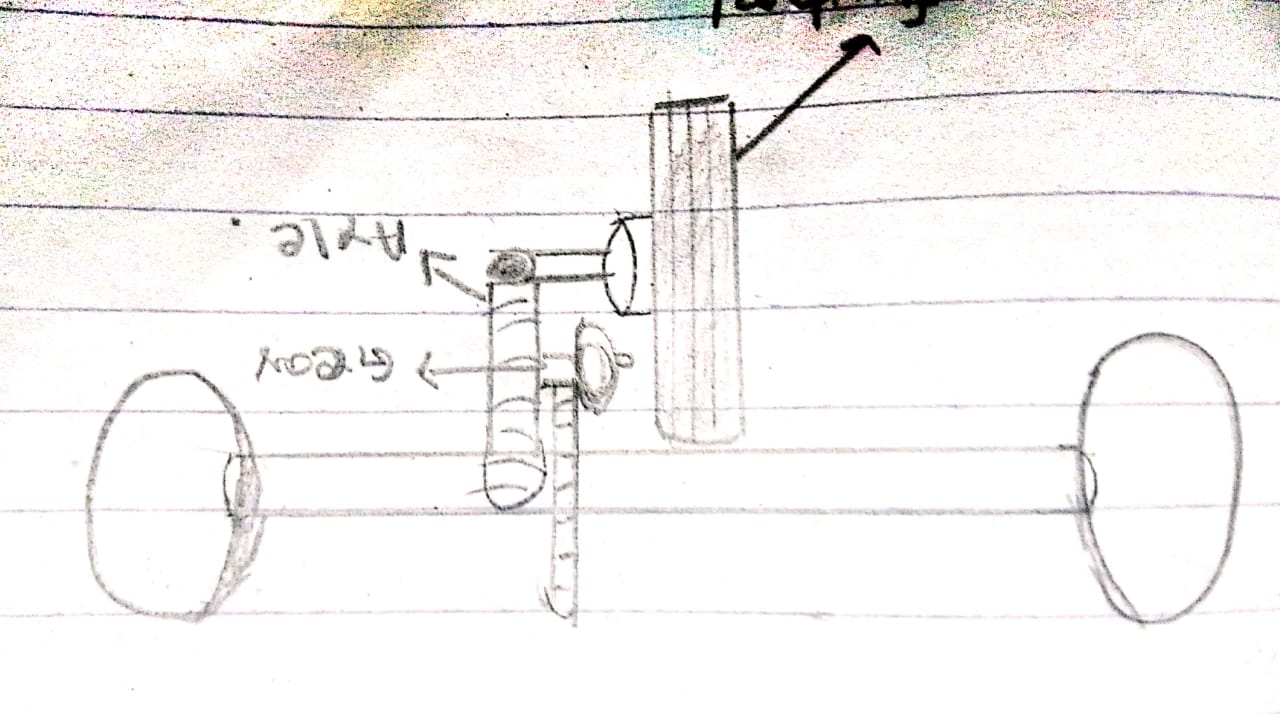 Axle
Gear